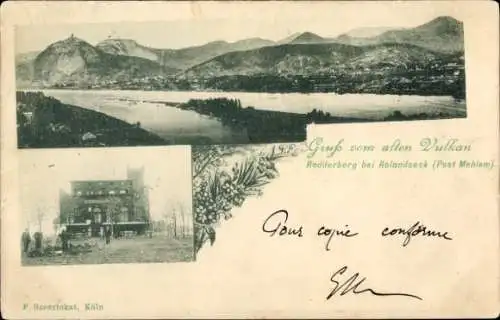 Gruß vom alten Vulkan
Rodderberg bei Rolandseck (Post Mehlem).
Pour copie conforme
F. Szesztokat, Köln